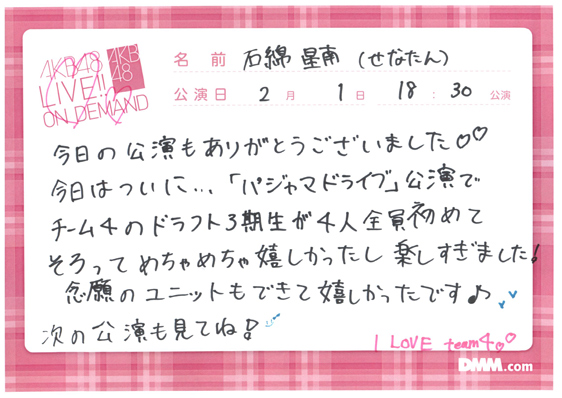 AKB48
LIVE!!
ON DEMAND
AKB
48
名前 石綿 星南 (せなたん)
公演日 2月 1日 18:30 公演
今日の公演もありがとうございました♡♡
今日はついに...「パジャマドライブ」公演で
チーム4のドラフト3期生が4人全員初めて
そろってめちゃめちゃ嬉しかったし楽しすぎました!
念願のユニットもできて嬉しかったです♪
次の公演も見てね!
I LOVE team4♡♡
DMM.com